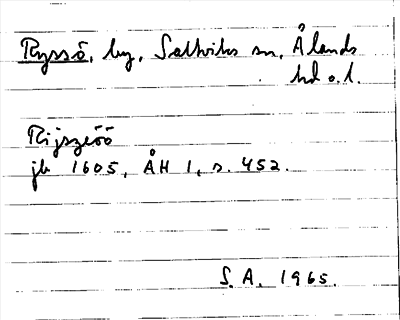 Ryssö, by, Saltviks sn, Ålands
hd o. l.
Rijszeöö
jb 1605, ÅH 1, s. 452.
S. A. 1965.